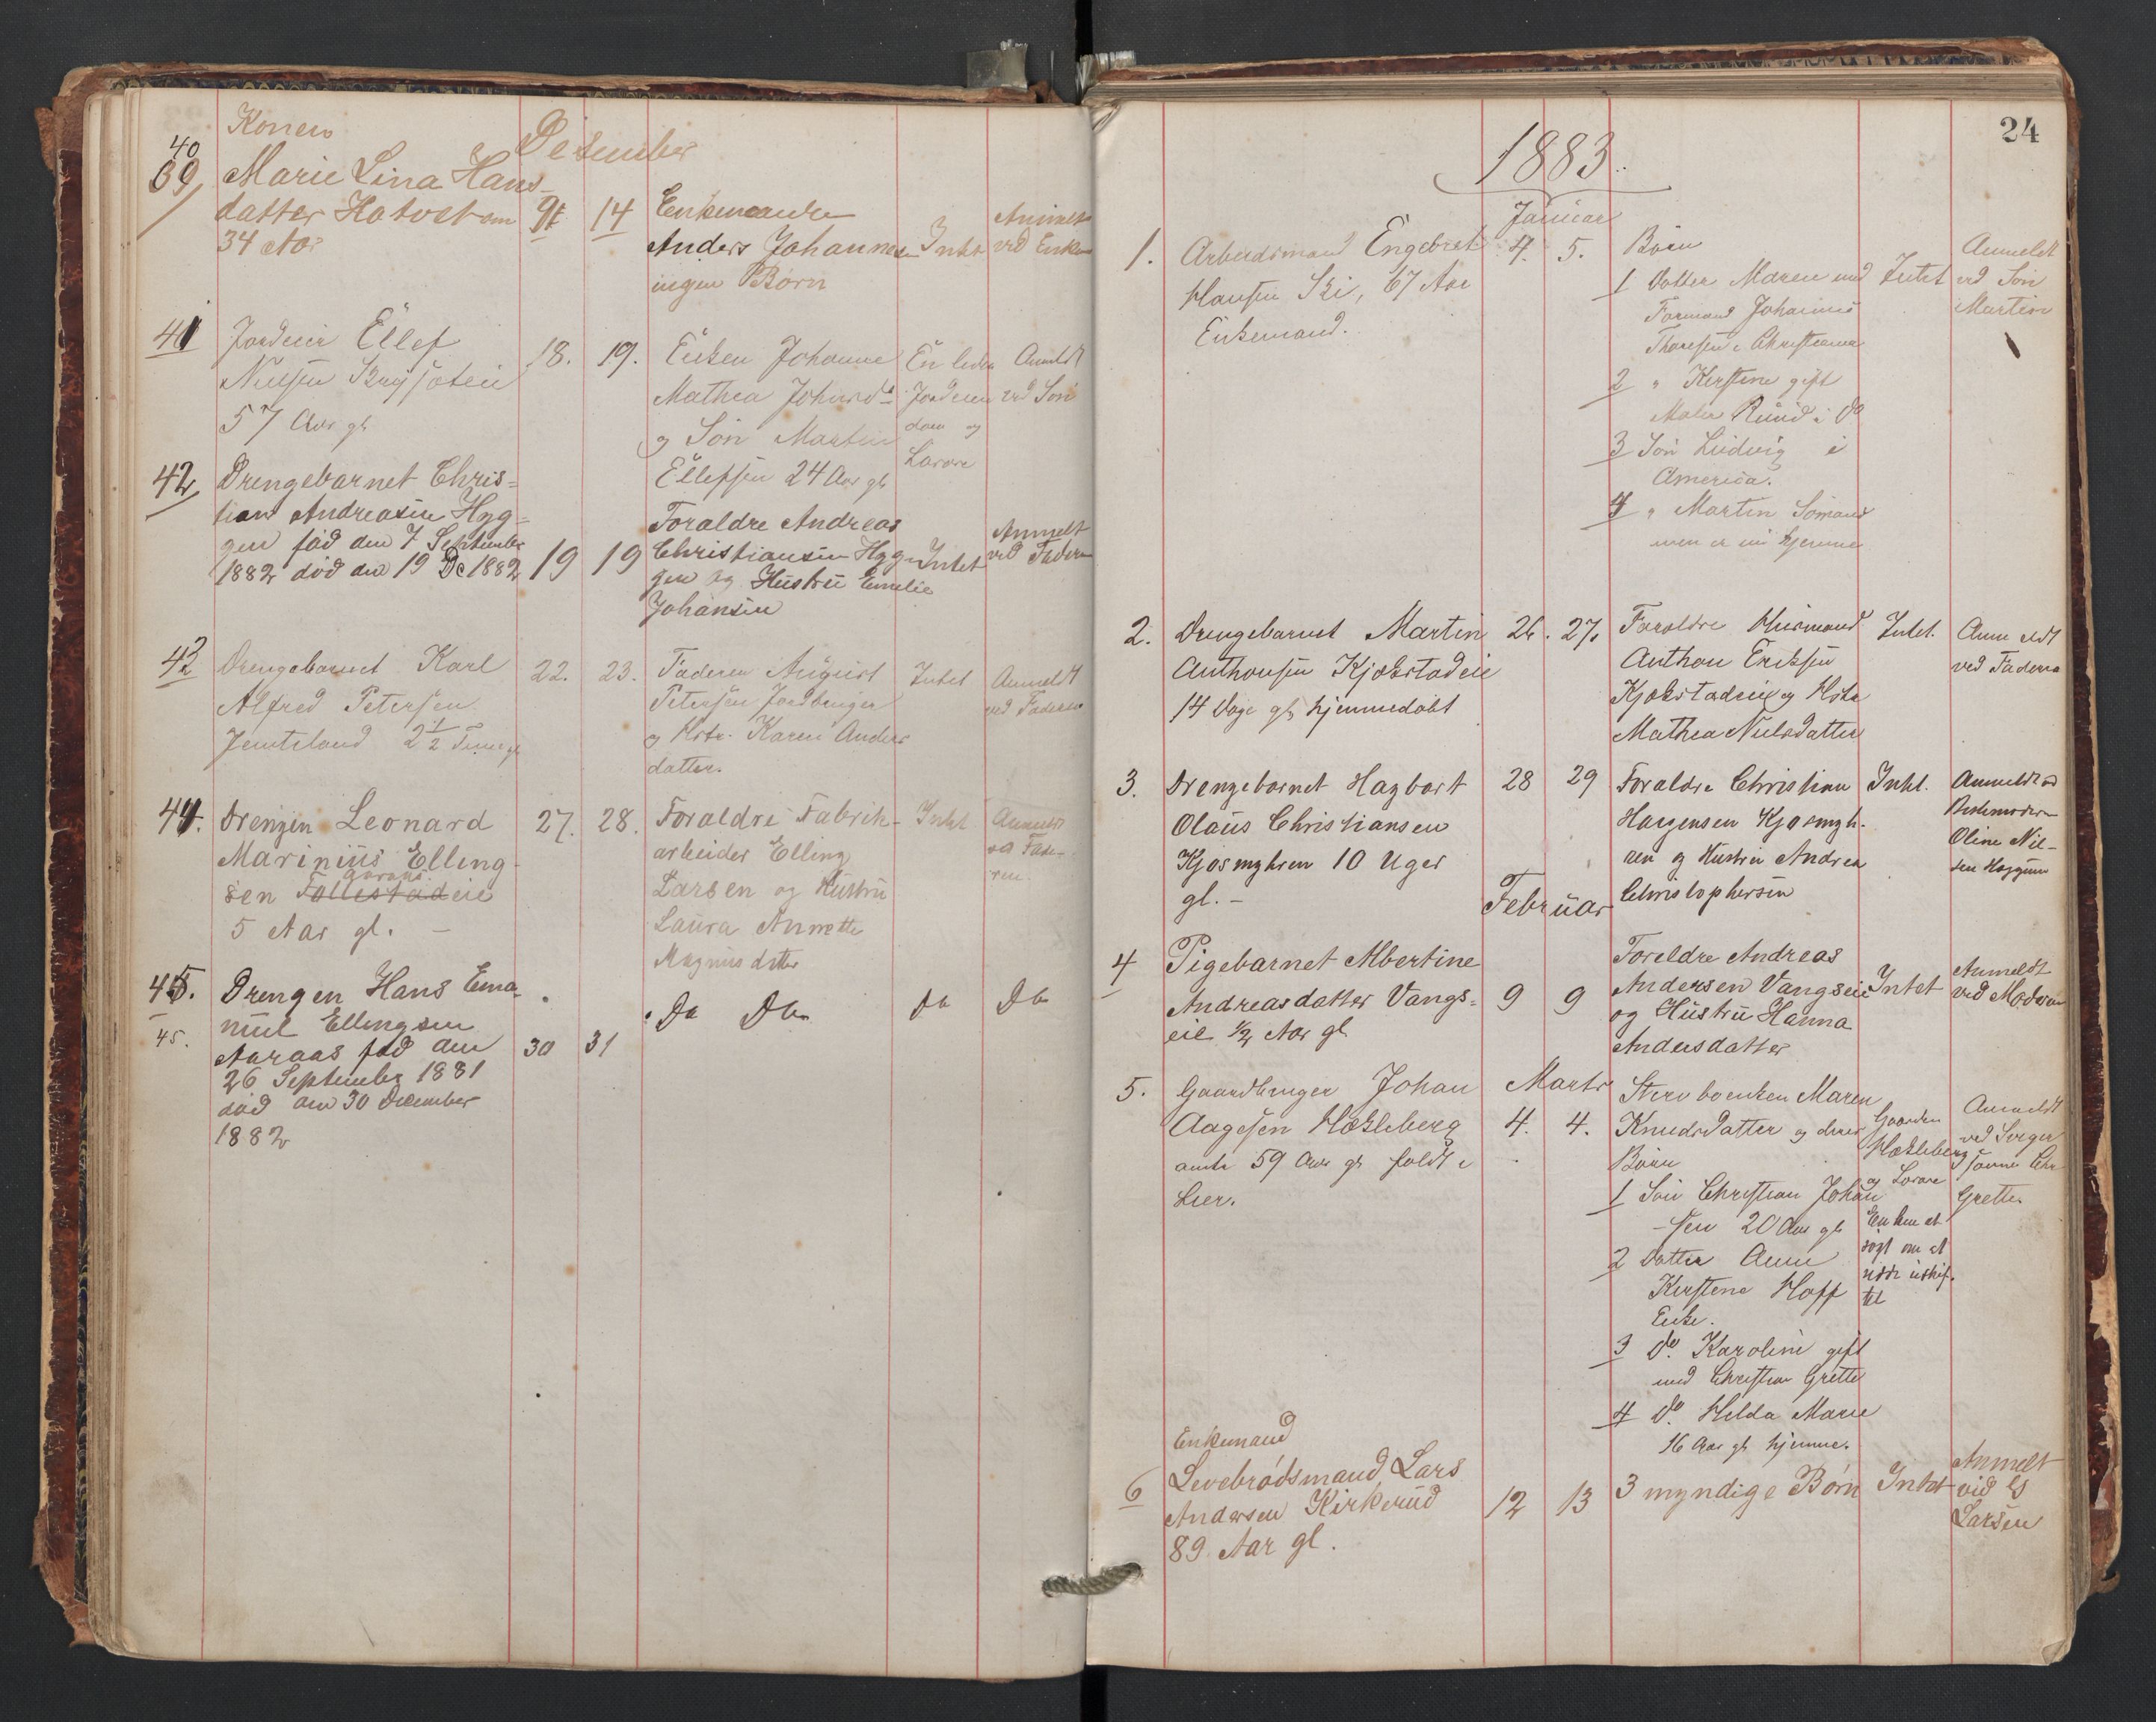 Konen
Desember
40
39
Marie Lina Hans-
datter Hotvet om
34 Aar
14
Enkemanden
Anders Johannesen
ingen Børn
Intet
Anmelt
ved Enkem
41
Jordeier Ellef
Nielsen
57 Aar gl
18.
19.
Enken Johanne
Mathea
og Søn Martin
Ellefsen 24 Aar gl
En liden
Jordeien
dom og
Løsøre
Anmeldt
ved Søn
42
Drengebarnet Chris=
tian Andreasen Hyg=
gen fød den 7 September
1882 død den 19 De 1882
19
19
Foraldre Andreas
Christiansen Hyg-
gen og Hustru Emelie
Johansen
Intet
Anmelt
ved Faderen
43
Drengebarnet Karl
Alfred Petersen
Jemtsland 2 1/2 Time gl
22.
23.
Faderen August
Petersen Jordbruger
og Hstr. Karen Anders
datter.
Intet
Anmeldt
ved Faderen
44.
Drengen Leonard
Marinius Elling-
Aaraas
sen Follestadeie
5 Aar gl. -
27.
28.
Foraldre Fabrik-
arbeider Elling
Larsen og Hustru
Laura Annette
Magnusdtter
Intet
Anmeldt
va Fade-
ren.
45.
45.
Drengen Hans Ema-
nuel Ellingsen
Aaraas fød den
26 September 1881
død den 30 December
1882
30
31
Do Do
Do
Do
24
1883.
Januar
1.
Arbeidsmand Engebret
Hansen Ski, 67 Aar
Enkemand.
4.
5.
Børn
1 Datter Maren med
Formand Johannes
Thoresen i Christiania
2 " Kirstine gift
Maler Ruud i Do
3 Søn Ludvig i
America.
4 " Martin Sømand
men er nu hjemme
Intet
Anmeldt
ved Søn
Martin
2.
Drengebarnet Martin
Anthonsen Kjøkstadeie
14 Dage gl, hjemmedøbt
26.
27.
Foraldre Husmand
Anthon Eriksen
Kjøkstadeie og Hstr
Mathea Nielsdatter
Intet.
Anmeldt
ved Faderen
3.
Drengebarnet Hagbart
Olaus Christiansen
Kjøsmyhren 10 Uger
gl. -
28
29
Foraldre Christian
Hansen Kjøsmyh-
ren og Hustru Andrea
Christophersen
Intet.
Anmeldt ved
Bestemoderen
Oline Niel-
sen
Februar
4
Pigebarnet Albertine
Andreasdatter Vangs=
eie 1/2 Aar gl
9
9
Foreldre Andreas
Andersen Vangseie
og Hustru Hanna
Andersdatter
Intet
Anmeldt
ved Moderen
Marts
5.
Gaardbruger Johan
Aagesen Høkleberg
59 Aar gl født i
Lier.
4.
4.
Stervboenken Maren
Knudsdatter og deres
Børn
1 Søn Christian Johan
-sen 20 Aar gl
2 Datter Anne
Kirstine Hoff
Enke.
3 Do. Karoline gift
med Christian Grette
4 Do. Hilda Marie
16 Aar gl hjemme.
Gaarden
Høkleberg
og Løsøre
Enken at
søgt om at
sidde uskif-
tet
Anmeldt
ved Sviger
sønnen Chr
Grette.
6
Enkemand
Levebrødsmand Lars
Andersen Kirkerud
89. Aar gl.
12
13
3 myndige Børn
Intet
Anmelt
vid
Larsen